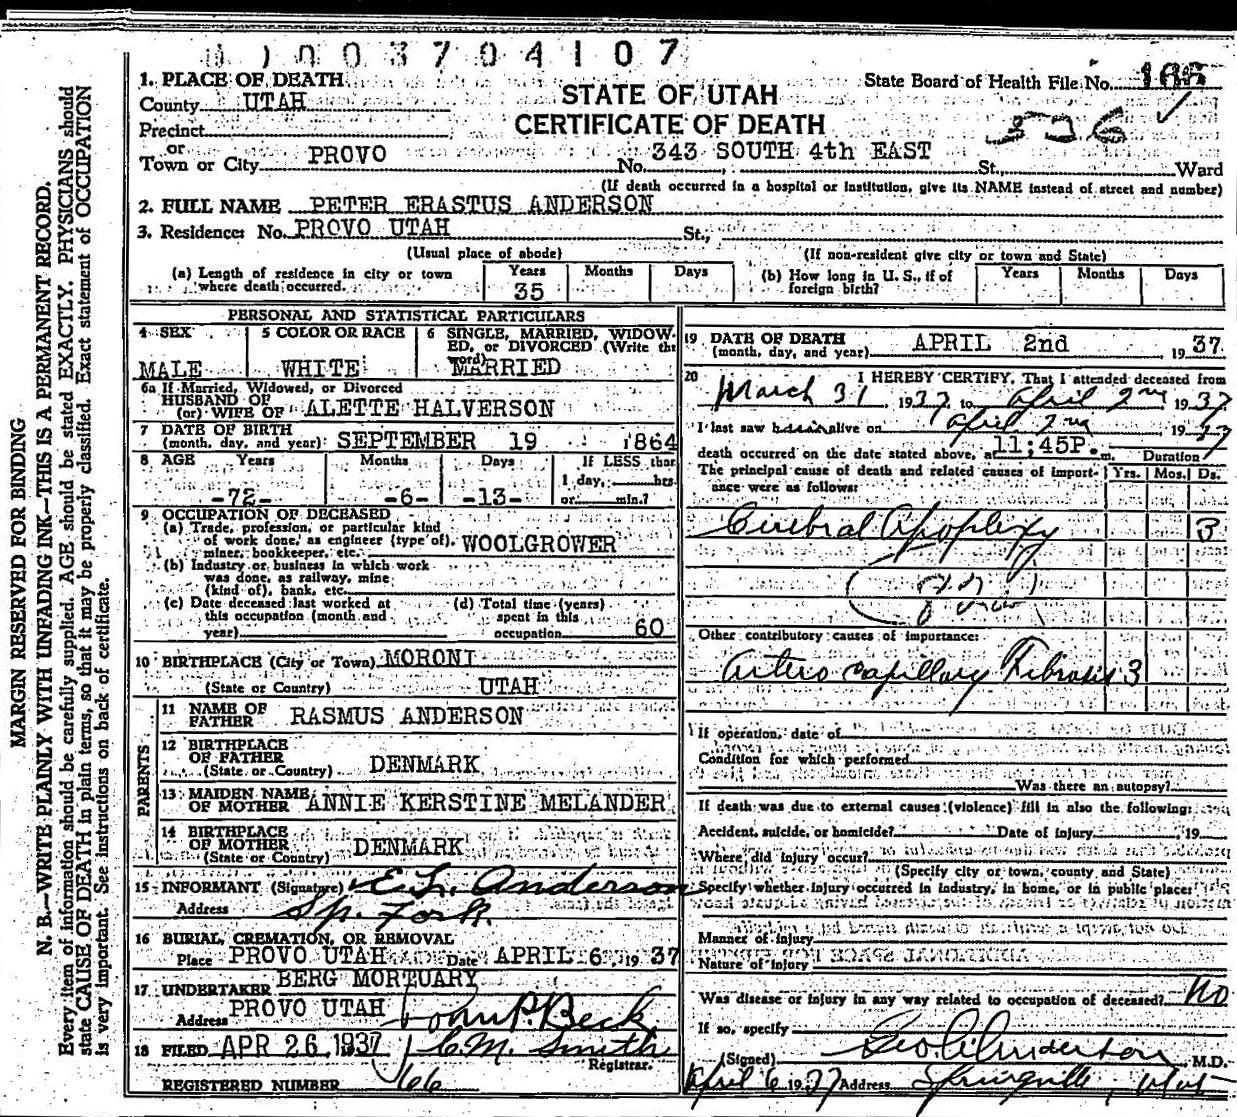 003704107
MARGIN RESERVED FOR BINDING
N. B.—WRITE PLAINLY WITH UNFADING INK—THIS IS A PERMANENT RECORD.
Every item of information should be carefully supplied. AGE should be stated EXACTLY. PHYSICIANS should
state CAUSE OF DEATH in plain terms, so that it may be properly classified. Exact statement of OCCUPATION
is very important. See instructions on back of certificate.
1. PLACE OF DEATH
County UTAH
Precinct
or
Town or City PROVO
STATE OF UTAH
CERTIFICATE OF DEATH
State Board of Health File No.
526
No. 343 SOUTH 4th EAST St., Ward
(If death occurred in a hospital or institution, give its NAME instead of street and number)
2. FULL NAME PETER ERASTUS ANDERSON
3. Residence: No. PROVO UTAH St.,
(Usual place of abode) (If non-resident give city or town and State)
(a) Length of residence in city or town where death occurred. Years 35 Months Days
(b) How long in U. S., if of foreign birth? Years Months Days
PERSONAL AND STATISTICAL PARTICULARS
4 SEX MALE
5 COLOR OR RACE WHITE
6 SINGLE, MARRIED, WIDOWED, or DIVORCED (Write the word) MARRIED
6a If Married, Widowed, or Divorced
HUSBAND OF
(or) WIFE OF ALETTE HALVERSON
7 DATE OF BIRTH
(month, day, and year) SEPTEMBER 19 1864
8 AGE Years Months Days If LESS than
-72- -6- -13- 1 day, hrs.
or min.?
9 OCCUPATION OF DECEASED
(a) Trade, profession, or particular kind
of work done, as engineer (type of), WOOLGROWER
miner, bookkeeper, etc.
(b) Industry or business in which work
was done, as railway, mine
(kind of), bank, etc.
(c) Date deceased last worked at
this occupation (month and
year)
(d) Total time (years)
spent in this
occupation 60
10 BIRTHPLACE (City or Town) MORONI
(State or Country) UTAH
PARENTS
11 NAME OF
FATHER RASMUS ANDERSON
12 BIRTHPLACE
OF FATHER
(State or Country) DENMARK
13 MAIDEN NAME
OF MOTHER ANNIE KERSTINE MELANDER
14 BIRTHPLACE
OF MOTHER
(State or Country) DENMARK
15 INFORMANT (Signature) Anderson
Address Sp. Fork.
16 BURIAL, CREMATION, OR REMOVAL
Place PROVO UTAH Date APRIL 6, 1937
17 UNDERTAKER BERG MORTUARY
Address PROVO UTAH John P. Beck
18 FILED APR 26 1937 C.M. Smith
Registrar.
REGISTERED NUMBER 66
19 DATE OF DEATH
(month, day, and year) APRIL 2nd 1937
20 I HEREBY CERTIFY, That I attended deceased from
March 31, 1937, to April 2nd 1937
I last saw h alive on April 2nd 1937
death occurred on the date stated above, at 11;45P. m. Duration
The principal cause of death and related causes of import- Yrs. Mos. Ds.
ance were as follows:
Cerebral Apoplexy 3
Other contributory causes of importance:
Artero capillary Fibrosis 3
If operation, date of
Condition for which performed
Was there an autopsy?
If death was due to external causes (violence) fill in also the following:
Accident, suicide, or homicide? Date of injury , 19
Where did injury occur?
(Specify city or town, county and State)
Specify whether injury occurred in industry, in home, or in public place:
Manner of injury
Nature of injury
Was disease or injury in any way related to occupation of deceased? No
If so, specify
(Signed) Geo. Anderson M.D.
April 6 1937 Address Springville, Utah